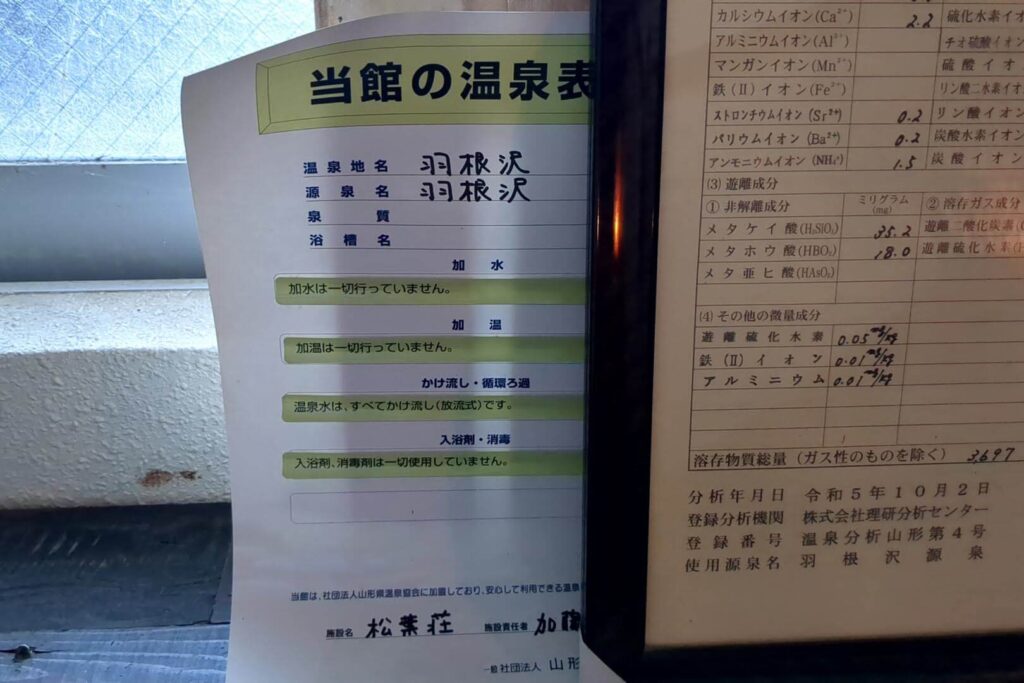 当館の温泉表
温泉地名 羽根沢
源泉名 羽根沢
泉質
浴槽名
加水
加水は一切行っていません。
加温
加温は一切行っていません。
かけ流し・循環ろ過
温泉水は、すべてかけ流し(放流式)です。
入浴剤・消毒
入浴剤、消毒剤は一切使用していません。
当館は、社団法人山形県温泉協会に加盟しており、安心して利用できる温泉
施設名 松葉荘 施設責任者 加藤
一般社団法人 山形
カルシウムイオン(Ca²⁺) 2.2 硫化水素イオ
アルミニウムイオン(Al³⁺) チオ硫酸イオン
マンガンイオン(Mn²⁺) 硫酸イオ
鉄(II)イオン(Fe²⁺) リン酸二水素イオ
ストロンチウムイオン(Sr²⁺) 0.2 リン酸イオン
バリウムイオン(Ba²⁺) 0.2 炭酸水素イオン
アンモニウムイオン(NH₄⁺) 1.5 炭酸イオン
(3) 遊離成分
① 非解離成分 ミリグラム(mg) ② 溶存ガス成分
メタケイ酸(H₂SiO₃) 35.2 遊離二酸化炭素(
メタホウ酸(HBO₂) 18.0 遊離硫化水素(
メタ亜ヒ酸(HAsO₂)
(4) その他の微量成分
遊離硫化水素 0.05mg/kg
鉄(II)イオン 0.01mg/kg
アルミニウム 0.01mg/kg
溶存物質総量(ガス性のものを除く) 3,697
分析年月日 令和5年10月2日
登録分析機関 株式会社理研分析センター
登録番号 温泉分析山形第4号
使用源泉名 羽根沢源泉